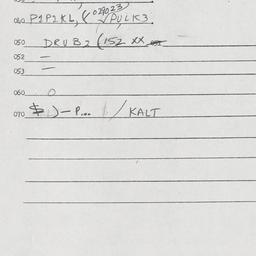 040 P1P1KL, (029023) /PULIK3.
050 DRUB2 (152 XX
052 =
053 =
060 O
070 $ )-P... / KALT